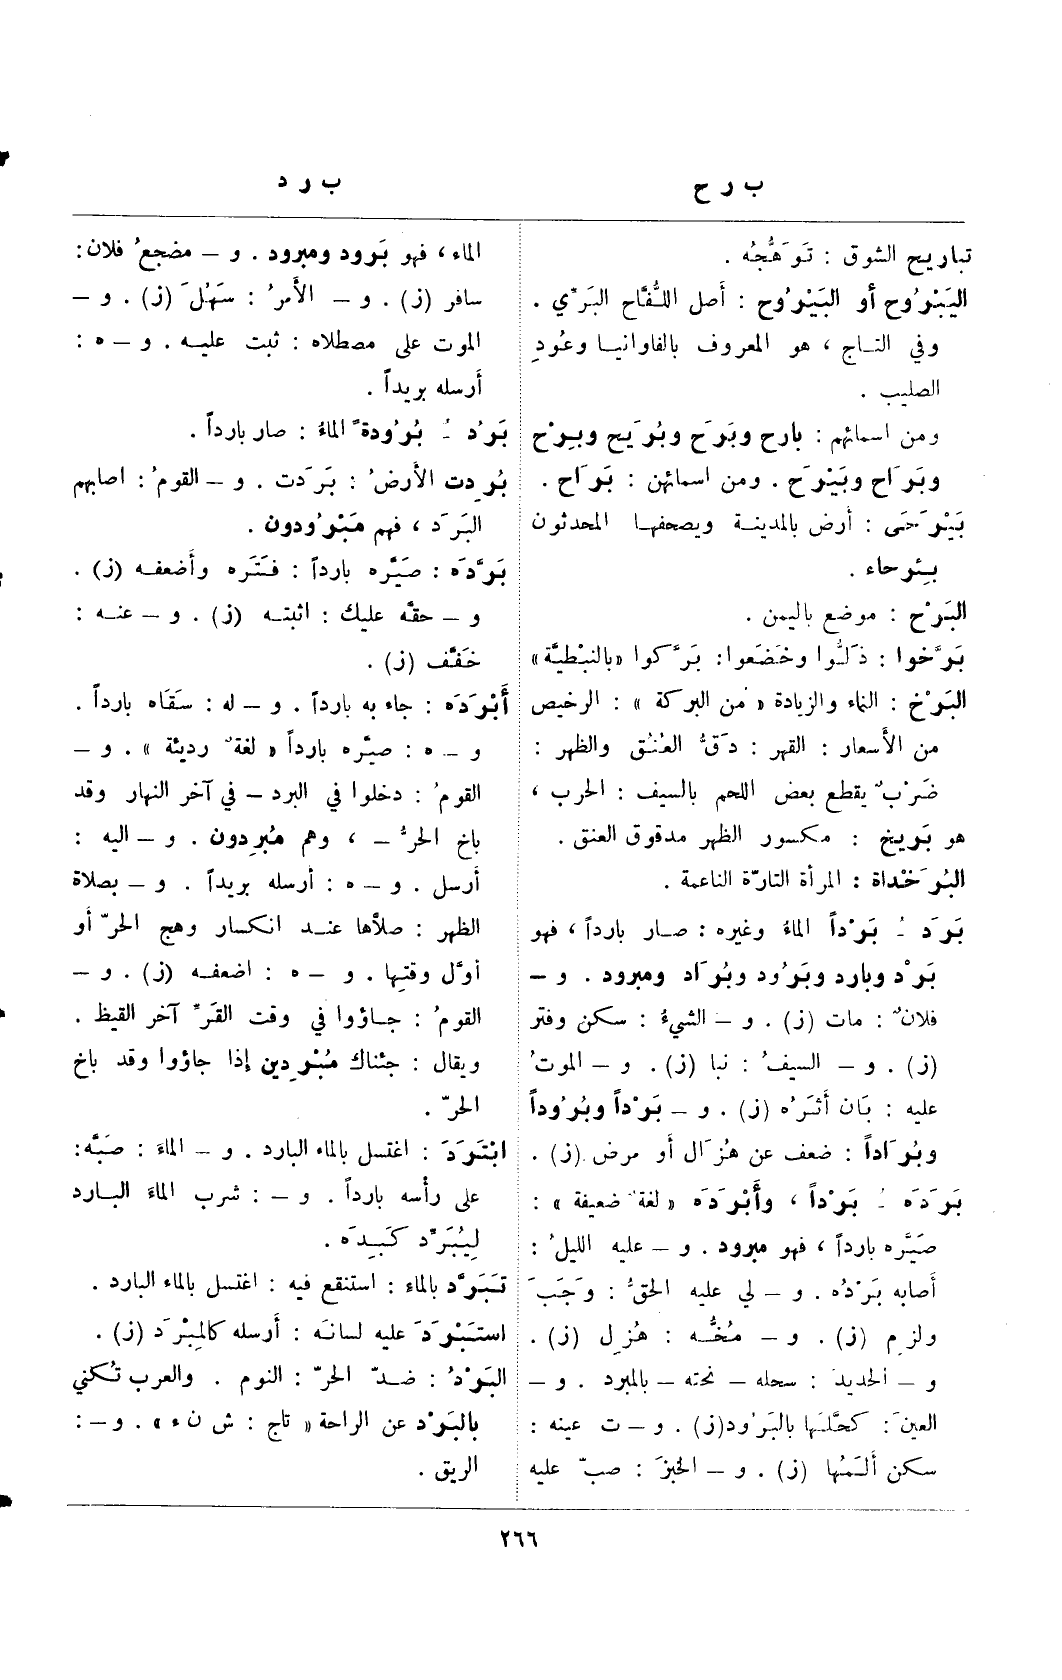 ب ر ح
ب ر د
تباريح الشوق : تَوَهُّجُه .
اليَبْرُوح أو البَيْرُوح : أصل اللُّفَّاح البَرّي .
وفي التاج ، هو المعروف بالفاوانيا وعُودِ
الصليب .
ومن اسمائهم : بارح وبَرَح وبُرَيح وبِرْح
وبَرَاح وبَيْرَح . ومن اسمائهن : بَرَاح .
بَيْرَحَى : أرض بالمدينة ويصحفها المحدثون
بِئرحاء .
البَرْح : موضع باليمن .
بَرَّخوا : ذَلُّوا وخَضَعوا: بَرَّكوا «بالنبْطيَّة»
البَرْخ : النماء والزيادة « من البركة » : الرخيص
من الأسعار : القهر : دَقُّ العُنُق والظهر :
ضَرْبٌ يقطع بعض اللحم بالسيف : الحرب ،
هو بَريخ : مكسور الظهر مدقوق العنق .
البُرَخْداة : المرأة التارّة الناعمة .
بَرَد ُ بَرْداً الماءُ وغيره : صار بارداً ، فهو
بَرْد وبارد وبَرُود وبُرَاد ومبرود . و –
فلانٌ : مات (ز) . و – الشيءُ : سكن وفتر
(ز) . و – السيفُ : نبا (ز) . و – الموتُ
عليه : بَان أثَرُه (ز) . و – بَرْداً وبُرُوداً
وبُرَاداً : ضعف عن هُزَال أو مرض (ز) .
بَرَدَه ُ بَرْداً ، وأبْرَدَه « لغةٌ ضعيفة » :
صَيَّره بارداً ، فهو مبرود . و – عليه الليلُ :
أصابه بَرْدُه . و – لي عليه الحقُّ : وَجَبَ
ولزم (ز) . و – مُخُّه : هُزِل (ز) .
و – الحديدَ : سحله – نحته – بالمبرد . و –
العينَ : كَحَّلَها بالبَرُود(ز) . و – ت عينه :
سكن ألَمُها (ز) . و – الخبزَ : صبّ عليه
الماء ، فهو بَرود ومبرود . و – مضجعُ فلان :
سافر (ز) . و – الأمرُ : سَهُلَ (ز) . و –
الموت على مصطلاه : ثبت عليه . و – ه :
أرسله بريداً .
بَرُد ُ بُرُودةً الماءُ : صار بارداً .
بُرِدت الأرضُ : بَرَدت . و – القومُ : اصابهم
البَرَد ، فهم مَبْرُودون .
بَرَّدَه : صَيَّره بارداً : فَتَره وأضعفه (ز) .
و – حقَّه عليك : اثبته (ز) . و – عنه :
خَفَّف (ز) .
أبْرَدَه : جاء به بارداً . و – له : سَقَاه بارداً .
و – ه : صيَّره بارداً « لغةٌ رديئة » . و –
القومُ : دخلوا في البرد – في آخر النهار وقد
باخ الحرُّ – ، وهم مُبرِدون . و – اليه :
أرسل . و – ه : أرسله بريداً . و – بصلاة
الظهر : صلاَّها عند انكسار وهج الحرّ أو
أوَّل وقتها . و – ه : اضعفه (ز) . و –
القومُ : جاؤوا في وقت القَرّ آخر القيظ .
ويقال : جئناك مُبْرِدين إذا جاؤوا وقد باخ
الحرّ .
ابْتَرَدَ : اغتسل بالماء البارد . و – الماءَ : صَبَّه:
على رأسه بارداً . و – : شرب الماءَ البارد
لِيُبَرِّد كَبِدَه .
تَبَرَّد بالماء : استنقع فيه : اغتسل بالماء البارد .
استَبْرَدَ عليه لسانَه : أرسله كالمِبْرَد (ز) .
البَرْدُ : ضدّ الحرّ : النوم . والعرب تُكني
بالبَرْد عن الراحة « تاج : ش ن ء » . و – :
الريق .
٢٦٦